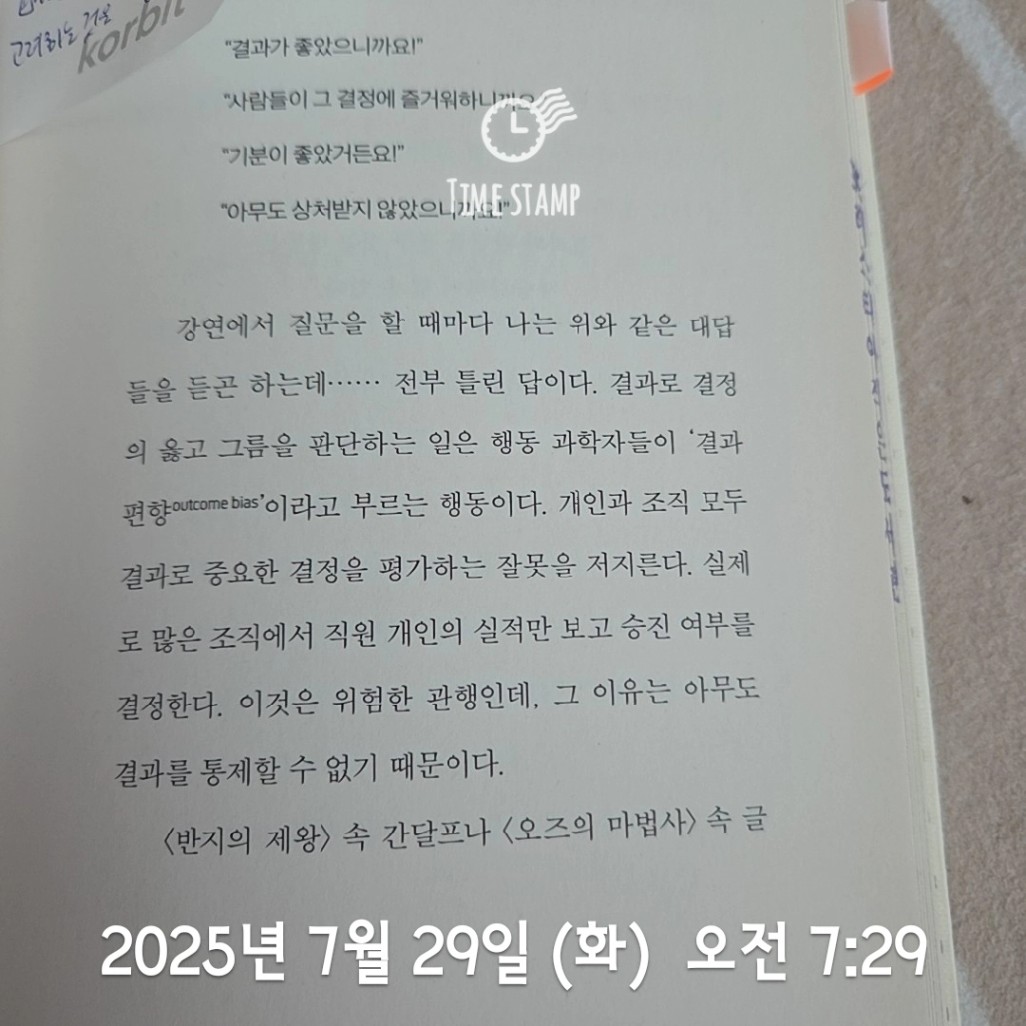 고려하는 것은
korbit
"결과가 좋았으니까요!"
"사람들이 그 결정에 즐거워하니까요
"기분이 좋았거든요!"
"아무도 상처받지 않았으니까요!"
TIME STAMP
강연에서 질문을 할 때마다 나는 위와 같은 대답
들을 듣곤 하는데…… 전부 틀린 답이다. 결과로 결정
의 옳고 그름을 판단하는 일은 행동 과학자들이 ‘결과
편향outcome bias’이라고 부르는 행동이다. 개인과 조직 모두
결과로 중요한 결정을 평가하는 잘못을 저지른다. 실제
로 많은 조직에서 직원 개인의 실적만 보고 승진 여부를
결정한다. 이것은 위험한 관행인데, 그 이유는 아무도
결과를 통제할 수 없기 때문이다.
〈반지의 제왕〉 속 간달프나 〈오즈의 마법사〉 속 글
2025년 7월 29일 (화) 오전 7:29